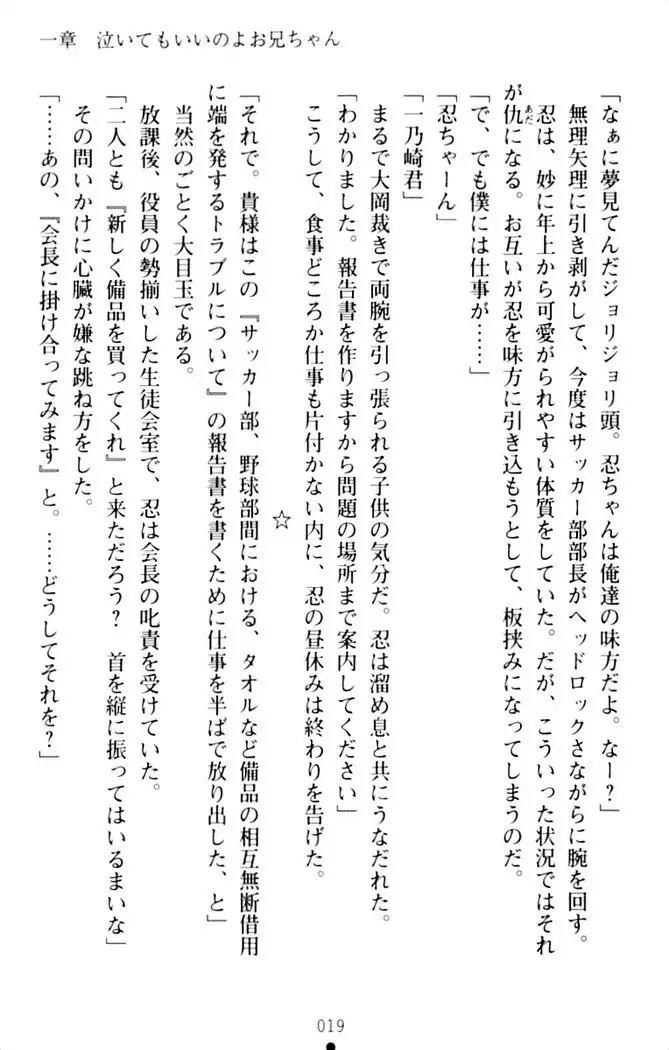 一章　泣いてもいいのよお兄ちゃん
「なぁに夢見てんだジョリジョリ頭。忍ちゃんは俺達の味方だよ。なー？」
無理矢理に引き剥がして、今度はサッカー部部長がヘッドロックさながらに腕を回す。
忍は、妙に年上から可愛がられやすい体質をしていた。だが、こういった状況ではそれ
が仇になる。お互いが忍を味方に引き込もうとして、板挟みになってしまうのだ。
「で、でも僕には仕事が……」
「忍ちゃーん」
「一乃崎君」
まるで大岡裁きで両腕を引っ張られる子供の気分だ。忍は溜め息と共にうなだれた。
「わかりました。報告書を作りますから問題の場所まで案内してください」
こうして、食事どころか仕事も片付かない内に、忍の昼休みは終わりを告げた。
☆
「それで。貴様はこの『サッカー部、野球部間における、タオルなど備品の相互無断借用
に端を発するトラブルについて』の報告書を書くために仕事を半ばで放り出した、と」
当然のごとく大目玉である。
放課後、役員の勢揃いした生徒会室で、忍は会長の叱責を受けていた。
「二人とも『新しく備品を買ってくれ』と来ただろう？　首を縦に振ってはいるまいな」
その問いかけに心臓が嫌な跳ね方をした。
「……あの、『会長に掛け合ってみます』と。……どうしてそれを？」
019